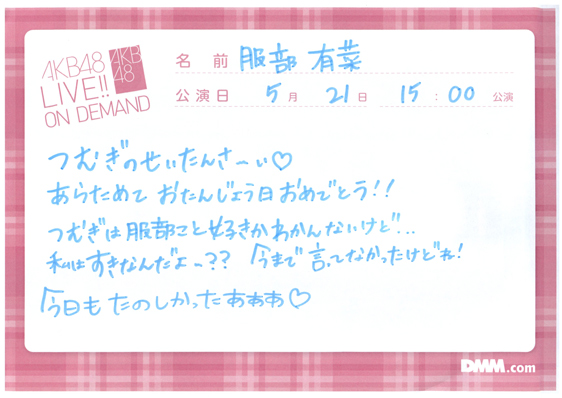 AKB48
LIVE!!
ON DEMAND
AKB
48
名前 服部 有菜
公演日 5月 21日 15:00 公演
つむぎのせいたんさーい♡
あらためて おたんじょう日おめでとう!!
つむぎは服部こと好きかわかんないけど...
私はすきなんだよっ?? 今まで言ってなかったけどね!
今日もたのしかったあああ♡
DMM.com